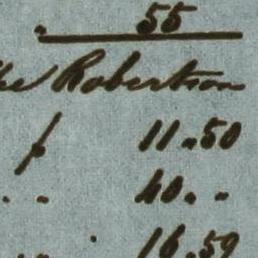 " 55
Robertson
f 11.50
" " 40. "
16.59